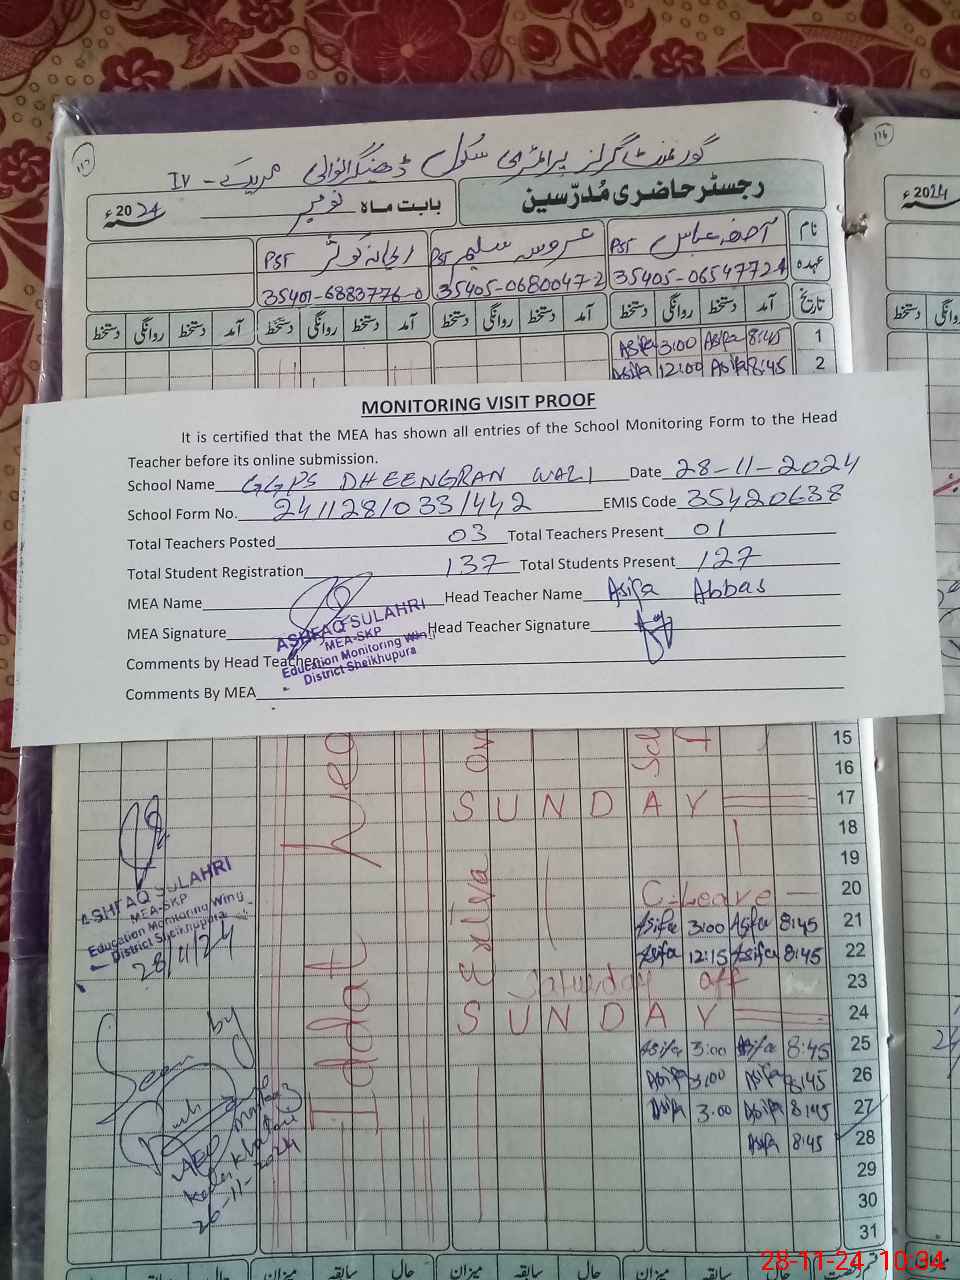 117
116
گورنمنٹ گرلز پرائمری سکول ڈھینگرانوالی مریدکے - IV
رجسٹر حاضری مُدرّسین
بابت ماہ نومبر 2024ء
2024ء
نام آصفہ عباس PST عروسہ سلیم PST ریحانہ کوثر PST
عہدہ 35405-0654772-4 35405-0680047-2 35401-6883776-0
تاریخ آمد دستخط روانگی دستخط آمد دستخط روانگی دستخط آمد دستخط روانگی دستخط آمد دستخط روانگی دستخط
Asifa 3:00 Asifa 8:45 1
Asifa 12:00 Asifa 8:45 2
MONITORING VISIT PROOF
It is certified that the MEA has shown all entries of the School Monitoring Form to the Head
Teacher before its online submission.
School Name GGPS DHEENGRAN WALI Date 28-11-2024
School Form No. 241128/033/442 EMIS Code 35420638
Total Teachers Posted 03 Total Teachers Present 01
Total Student Registration 137 Total Students Present 127
MEA Name Head Teacher Name Asifa Abbas
MEA Signature Head Teacher Signature
ASHFAQ SULAHRI
MEA-SKP
Education Monitoring Wing
District Sheikhupura
Comments by Head Teacher
Comments By MEA
15
16
SUNDAY 17
18
19
C-Leave 20
Asifa 3:00 Asifa 8:45 21
Asifa 12:15 Asifa 8:45 22
Saturday off 23
SUNDAY 24
Asifa 3:00 Asifa 8:45 25
Asifa 3:00 Asifa 8:45 26
Asifa 3:00 Asifa 8:45 27
Asifa 8:45 28
29
30
31
Iddat
ASHFAQ SULAHRI
MEA-SKP
Education Monitoring Wing
District Sheikhupura
28/11/24
Seen by
26-11-2024
حال سابقہ میزان حال سابقہ میزان حال
28-11-24 10:34